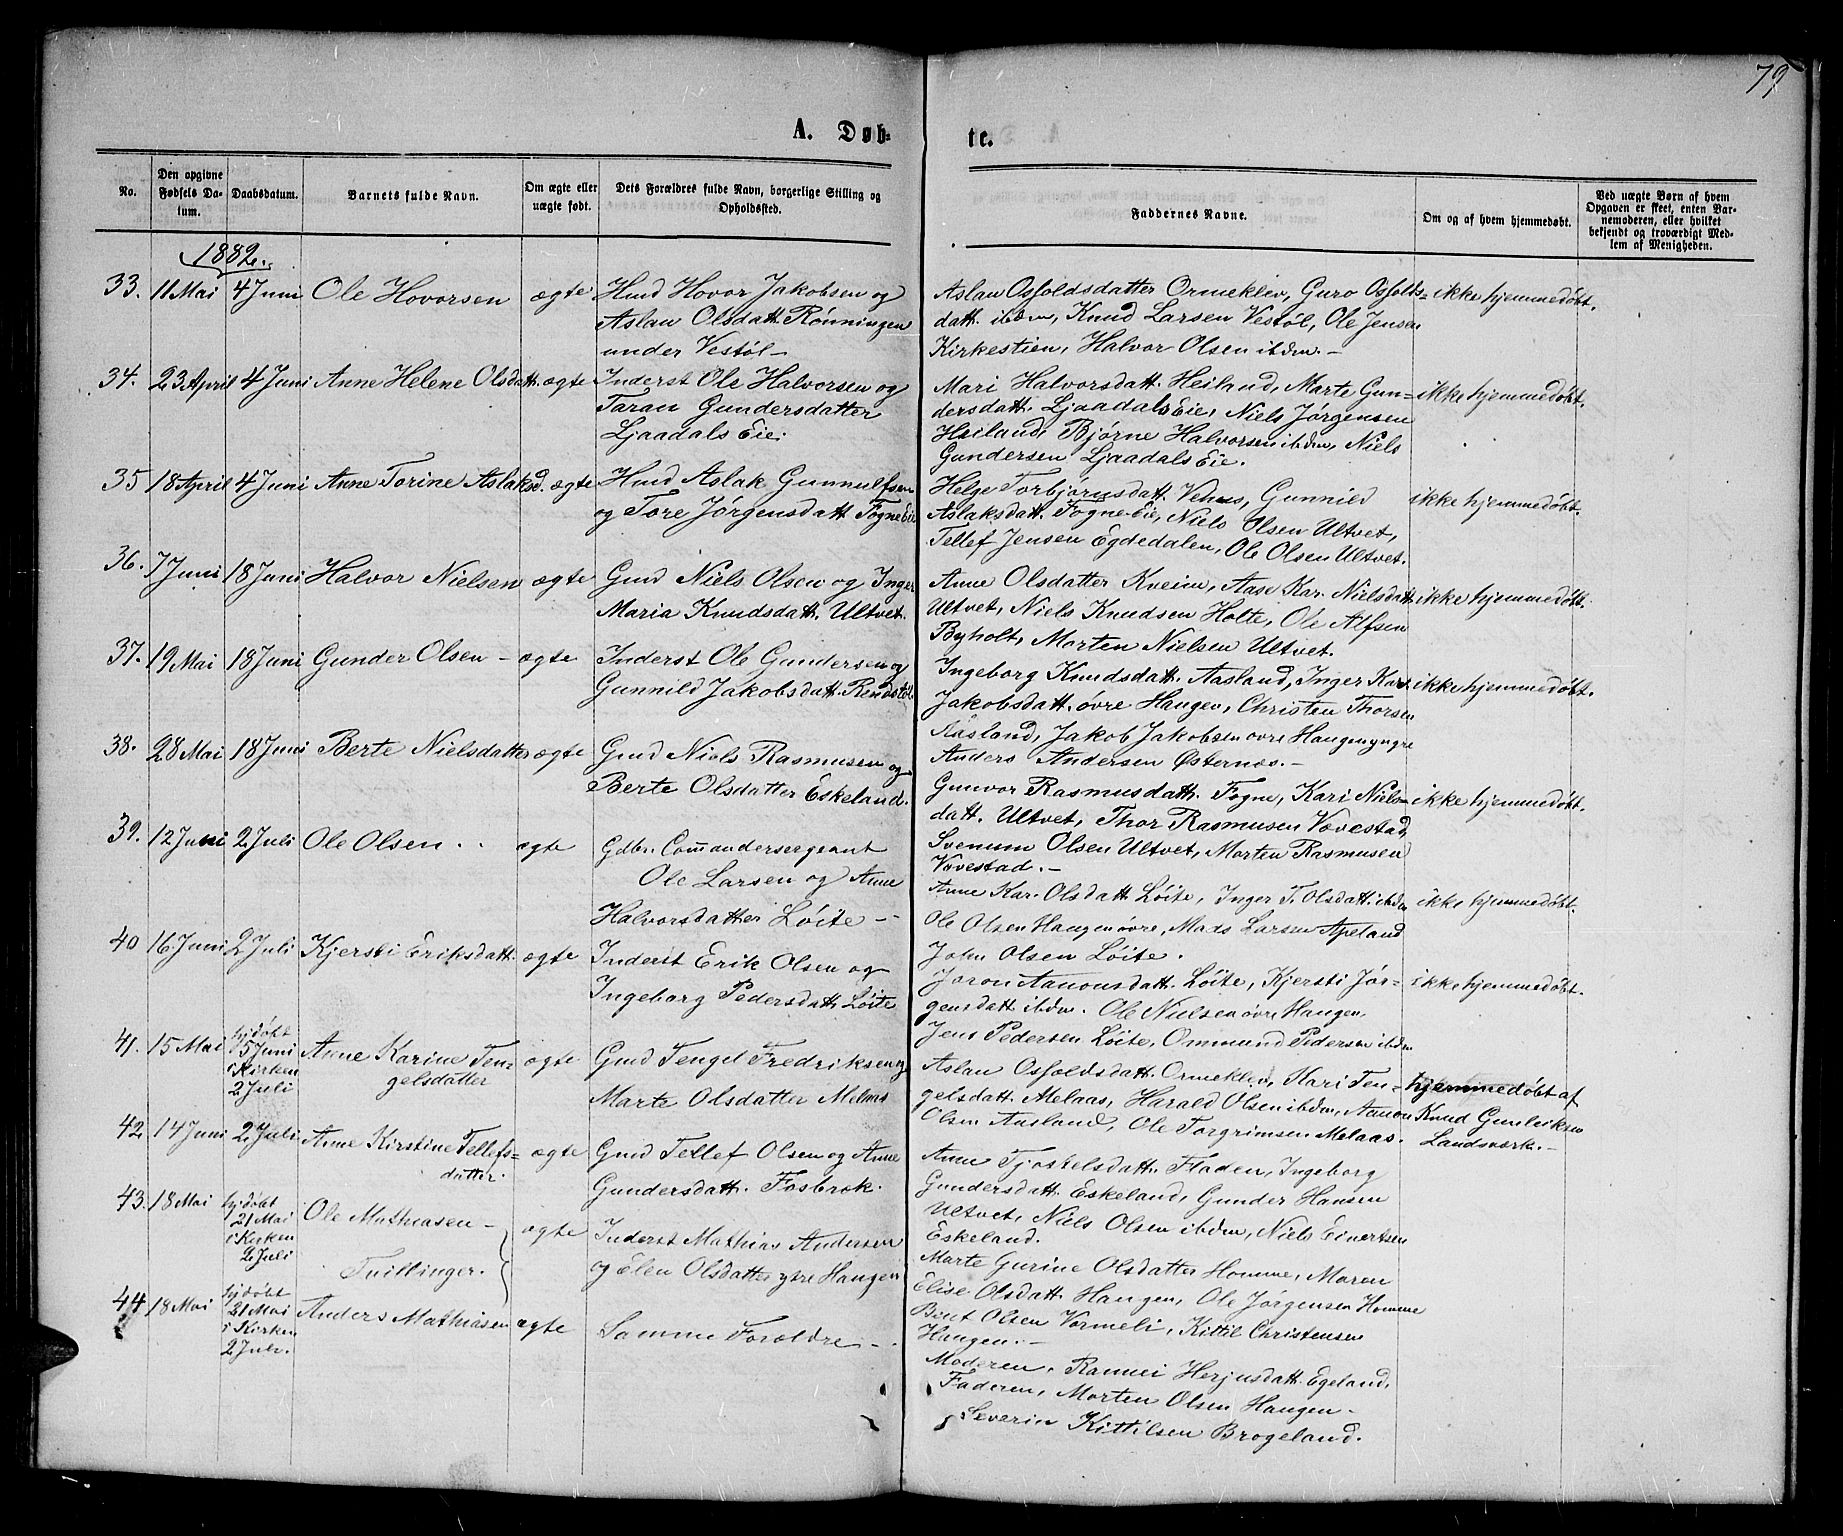 79
A. Døb-
te.
No.
Den opgivne
Fødsels Da-
tum.
Daabsdatum.
Barnets fulde Navn.
Om ægte eller
uægte født.
Dets Forældres fulde Navn, borgerlige Stilling og
Opholdssted.
Faddernes Navne.
Om og af hvem hjemmedøbt.
Ved uægte Børn af hvem
Opgaven er skeet, enten Bar-
nemoderen, eller hvilket
bekjendt og troværdigt Med-
lem af Menigheden.
1882.
33. 11 Mai 4 Juni Ole Hovorsen ægte
Hmd Hovor Jakobsen og
Aslau Olsdatt. Rönningen
under Vestöl
Aslau Osfoldsdatter Ormekliv, Guro Osfolds=
datt. ibdm, Knud Larsen Vestöl, Ole Jensen
Kirkestien, Halvor Olsen ibdm.
ikke hjemmedöbt.
34. 23 April 4 Juni Anne Helene Olsdatt. ægte
Inderst Ole Halvorsen og
Taran Gundersdatter
Ljaadals Eie.
Mari Halvorsdatt. Heilund, Marte Gun=
dersdatt. Ljaadals Eie, Niels Jörgensen
Heiland, Bjørne Halvorsen ibdm, Niels
Gundersen Ljaadals Eie.
ikke hjemmedöbt.
35 18 April 4 Juni Anne Torine Aslaksd. ægte
Hmd Aslak Gunnulfsen
og Tore Jörgensdatt. Fogne Eie
Helge Torbjörnsdatt. Vehus, Gunnild
Aslaksdatt. Fogne Eie, Niels Olsen Ultvet,
Tellef Jensen Egdedalen, Ole Olsen Ultvet.
ikke hjemmedöbt.
36. 7 Juni 18 Juni Halvor Nielsen ægte
Gmd Niels Olsen og Inger
Maria Knudsdatt. Ultvet.
Anne Olsdatter Kveim, Aase Kar. Nielsdatt.
Ultvet, Niels Knudsen Holte, Ole Alfsen
Byholt, Morten Nielsen Ultvet.
ikke hjemmedöbt.
37. 19 Mai 18 Juni Gunder Olsen ægte
Inderst Ole Gundersen og
Gunnild Jakobsdatt.
Ingeborg Knudsdatt. Aasland, Inger Kar.
Jakobsdatt. övre Haugen, Christen Thorsen
Aasland, Jakob Jakobsen övre Haugen yngre
Anders Andersen Østernæs.
ikke hjemmedöbt.
38. 28 Mai 18 Juni Berte Nielsdatter ægte
Gmd Niels Rasmusen og
Berte Olsdatter Eskeland.
Gunvor Rasmusdatt. Fogne, Kari Niels=
datt. Ultvet, Thor Rasmusen Vævestad,
Svenum Olsen Ultvet, Morten Rasmusen
Vævestad.
ikke hjemmedöbt.
39. 12 Juni 2 Juli Ole Olsen ægte
Gdbr. Comandersergeant
Ole Larsen og Anne
Halvorsdatter Löite
Anne Kar. Olsdatt. Löite, Inger T. Olsdatt. ibdm
Ole Olsen Haugen övre, Mads Larsen Apeland
John Olsen Löite.
ikke hjemmedöbt.
40 16 Juni 2 Juli Kjersti Eriksdatt. ægte
Inderst Erik Olsen og
Ingeborg Pedersdatt. Löite
Joron Aanonsdatt. Löite, Kjersti Jör=
gensdatt ibdm. Ole Nielsen övre Haugen,
Jens Pedersen Löite, Ommund Pedersen ibdm
ikke hjemmedöbt.
41. 15 Mai hjdöbt
5 Juni
i Kirken
2 Juli
Anne Karine Ten=
gelsdatter
ægte
Gmd Tengel Fredriksen og
Marte Olsdatter Melaas
Aslau Osfoldsdatt. Ormekliv, Kari Ten=
gelsdatt. Melaas, Harald Olsen ibdm, Aanon
Olsen Aasland, Ole Torgrimsen Melaas.
hjemmedöbt af
Knud Gunleiksen
Landsværk.
42. 14 Juni 2 Juli Anne Kirstine Tellefs=
datter.
ægte
Gmd Tellef Olsen og Anne
Gundersdatt. Fosbrok.
Anne Tjostelsdatt. Fladen, Ingeborg
Gundersdatt. Eskeland, Gunder Hansen
Ultvet, Niels Olsen ibdm, Niels Einertsen
Eskeland.
43. 18 Mai hjdöbt
21 Mai
i Kirken
2 Juli
Ole Mathiasen
Tvillinger.
ægte
Inderst Mathias Andersen
og Elen Olsdatter ytre Haugen
Marte Gurine Olsdatter Homme, Maren
Elise Olsdatt. Haugen, Ole Jörgensen Homme
Olsen Vormeli, Kittil Christensen
Haugen.
44 18 Mai hjdöbt
21 Mai
i Kirken
2 Juli.
Anders Mathiasen ægte
Samme Forældre
Moderen, Herjusdatt. Egeland,
Faderen, Morten Olsen Haugen
Severin Kittilsen Brogeland.